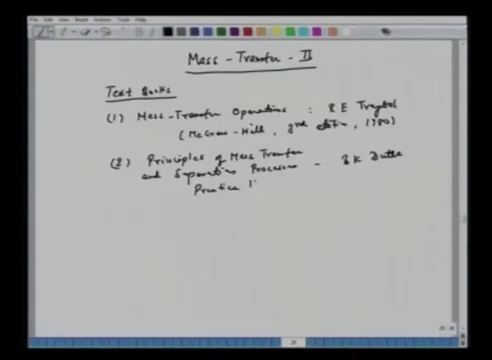 Mass - Transfer - II
Text Books
(1) Mass - Transfer Operations : R E Treybal
(McGraw-Hill, 3rd edition, 1980)
(2) Principles of Mass Transfer
and Separation Processes - B K Dutta
Prentice H